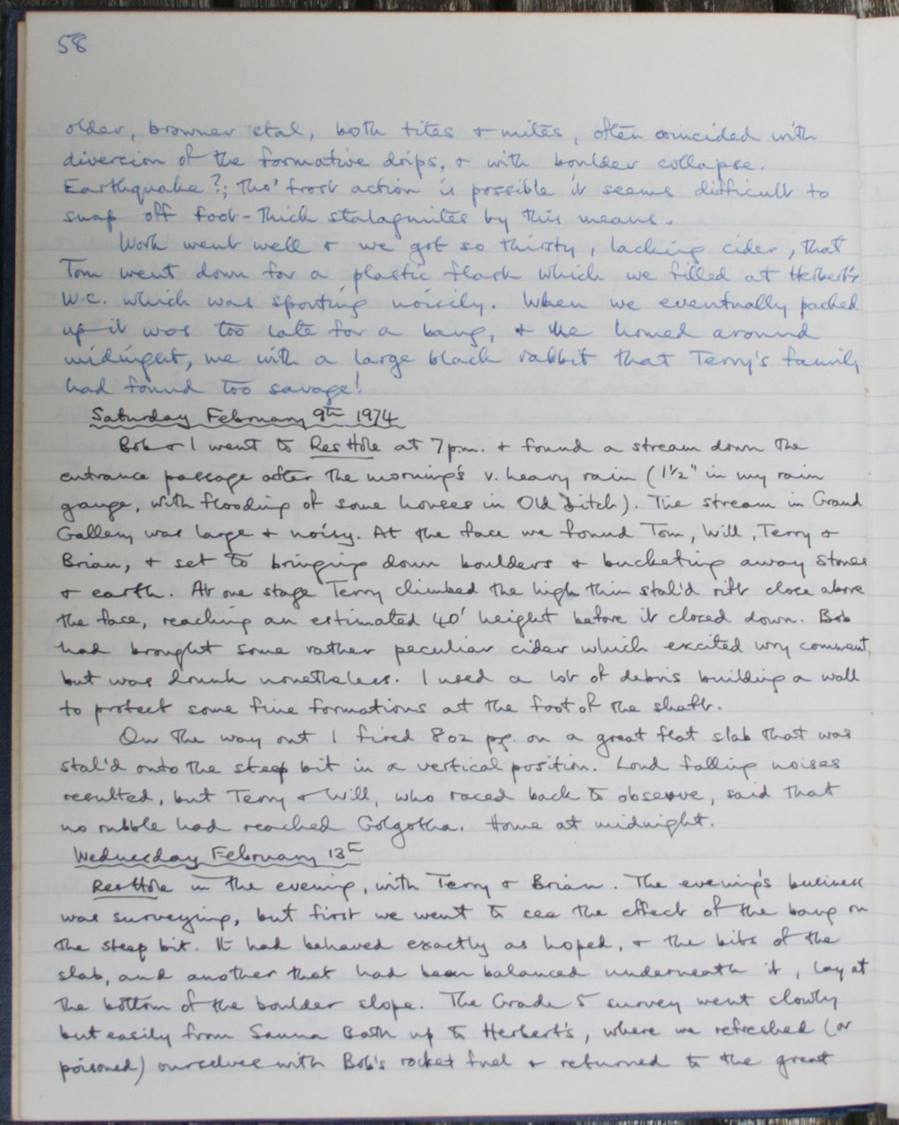 58
older, browner stal, both tites + mites, often coincided with
diversion of the formative drips, + with boulder collapse.
Earthquake?; tho' frost action is possible it seems difficult to
snap off foot-thick stalagmites by this means.
Work went well + we got so thirsty, lacking cider, that
Tom went down for a plastic flask which we filled at Herbert's
W.C. which was spouting noisily. When we eventually packed
up it was too late for a bang, + we homed around
midnight, me with a large black rabbit that Terry's family
had found too savage!
Saturday February 9th 1974
Bob + I went to Res Hole at 7pm. + found a stream down the
entrance passage after the morning's v. heavy rain (1½" in my rain
gauge, with flooding of some houses in Old Ditch). The stream in Grand
Gallery was large + noisy. At the face we found Tom, Will, Terry +
Brian, + set to bringing down boulders + bucketing away stones
+ earth. At one stage Terry climbed the high thin stal'd rift close above
the face, reaching an estimated 40' height before it closed down. Bob
had brought some rather peculiar cider which excited wry comment,
but was drunk nonetheless. I used a lot of debris building a wall
to protect some fine formations at the foot of the shaft.
On the way out I fired 8oz p.g. on a great flat slab that was
stal'd onto the steep bit in a vertical position. Loud falling noises
resulted, but Terry + Will, who raced back to observe, said that
no rubble had reached Golgotha. Home at midnight.
Wednesday February 13th
Res Hole in the evening, with Terry + Brian. The evening's business
was surveying, but first we went to see the effect of the bang on
the steep bit. It had behaved exactly as hoped, + the bits of the
slab, and another that had been balanced underneath it, lay at
the bottom of the boulder slope. The Grade 5 survey went slowly
but easily from Sauna Bath up to Herbert's, where we refreshed (or
poisoned) ourselves with Bob's rocket fuel + returned to the great